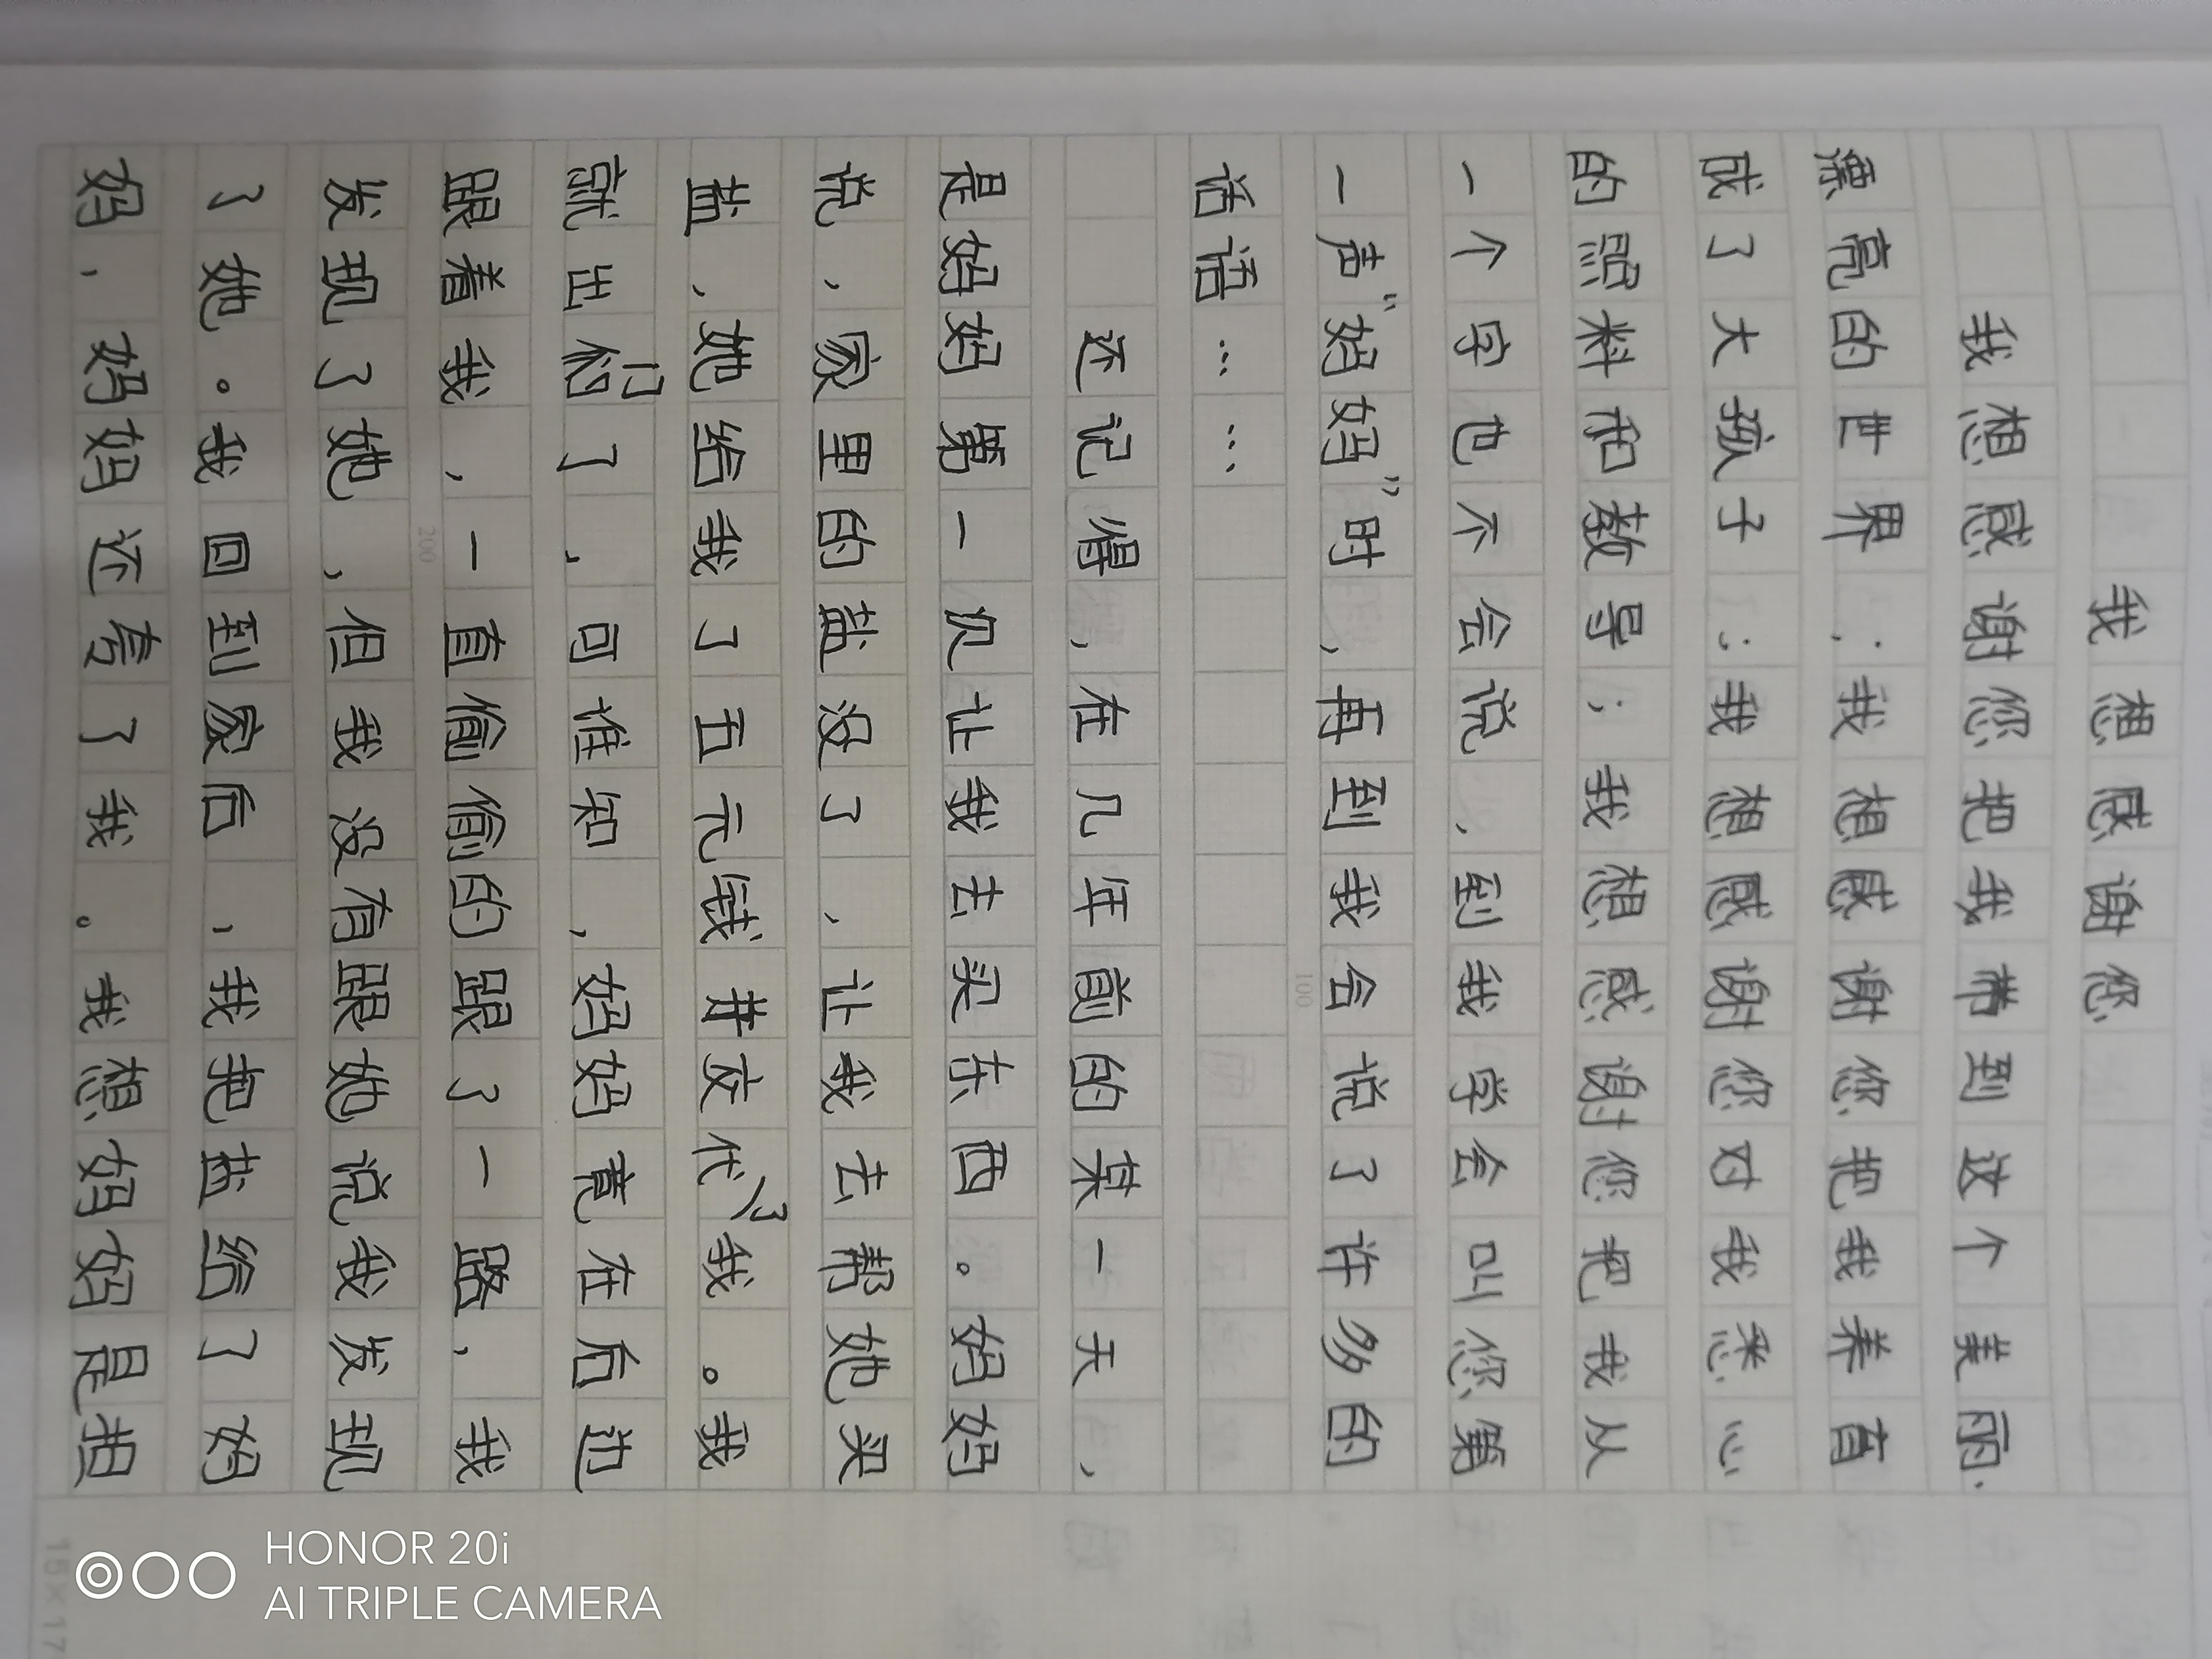 我想感谢您
我想感谢您把我带到这个美丽.
漂亮的世界;我想感谢您把我养育
成了大孩子;我想感谢您对我悉心
的照料和教导;我想感谢您把我从
一个字也不会说,到我学会叫您第
一声“妈妈”时,再到我会说了许多的
话语……
还记得,在几年前的某一天,
是妈妈第一次让我去买东西。妈妈
说,家里的盐没了,让我去帮她买
盐,她给我了五元钱并交代了我。我
就出们门了,可谁知,妈妈竟在后边
跟着我,一直偷偷的跟了一路,我
发现了她,但我没有跟她说我发现
了她。我回到家后,我把盐给了妈
妈,妈妈还夸了我。我想妈妈是担
100
200
15×17
HONOR 20i
AI TRIPLE CAMERA